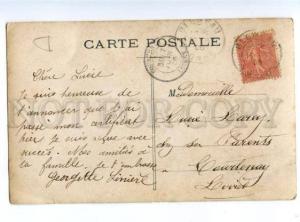 CARTE POSTALE
Chère Lucie
Je suis heureuse de
t'annoncer que j'ai
passé mon certificat
hier je suis reçue avec
succès. Mes amitiés à
ta famille. Je t'embrasse
Georgette Linière
Mademoiselle
Lucie
chez ses Parents
Courtenay
Loiret